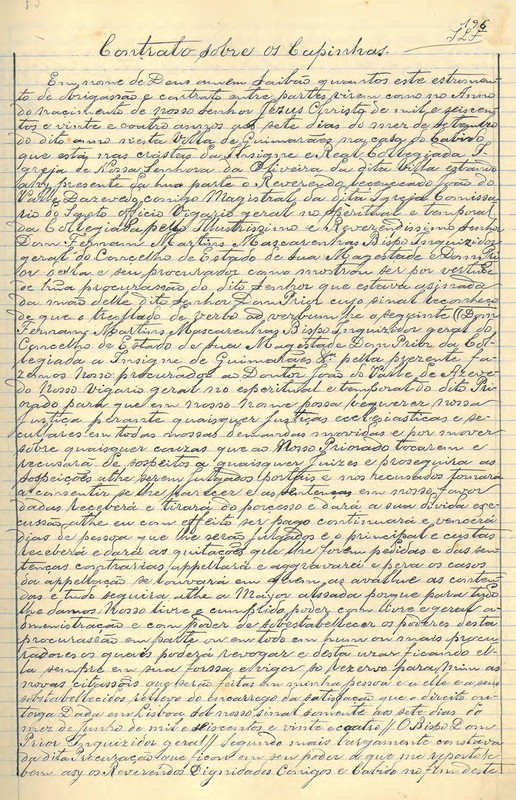 196
Contrato sobre os Capinhas.
Em nome de Deus amem Saibão quantos este estromen-
to de obrigassão e contrato entre partes virem como no Anno
do nascimento de nosso Senhor Jesus Christo de mil e seiscen-
tos e vinte e coatro annos aos sete dias do mez de
do dito anno nesta Villa de Guimarães na caza do Cabido
que está nas crastas da Insigne e Real Collegiada I-
greja de Nossa Senhora da Oliveira da dita Villa estando
ahy prezente da hua parte o Reverendo Lecenceado João do
Valle Dazevedo conigo Magistral da dita Igreja Comissa-
rio do Santo Officio Vigario geral no Spiritual e temporal
da Collegiada pelo Illustrissimo e Reverendissimo Senhor
Dom Fernam Martins Mascarenhas Bispo Inquizidor
geral do Concelho de Estado de Sua Magestade e Dom Pri
or della e seu procurador como mostrou ser por vertude
de hũa procurassão do dito Senhor que estava assinada
da mão delle dito Senhor Dom Prior cujo sinal reconheço
de que o treslado de verbo ad verbum he o seguinte (Dom
Fernam Martins Mascarenhas Bispo Inquizidor geral do
Concelho de Estado de Sua Magestade Dom Prior da Col-
legiada a Insigne de Guimarães &ª pella prezente fa-
zemos Nosso procurador a Doutor João do Valle de Azeve-
do Nosso Vigario geral no espiritual e temporal do dito Pri
orado para que em nosso nome possa requerer nossa
Justiça perante quaisquer Justiças ecclesiasticas e se-
culares em todas nossas demandas movidas e por mover
sobre quaisquer cauzas que ao Nosso Priorado tocarem e
recusará de sospeitos a quaisquer Juizes e proseguira as
sospeições athe serem julgados por tais e nos recusados tornará
a consentir se lhe parecer e as sentenças em nosso favor
dadas receberá e tirará do porcesso e dará a sua divida exe-
cussão athe eu com effeito ser pago continuará e vencerá
dias de pessoa que lhe serão julgados e o principal e custas
receberá e dará as quitações que lhe forem pedidas e das sen-
tenças contrarias appellará e aggravará e pera os cazos
da appellação se louvará em quem as avalue as conten-
das e tudo seguira athe a Mayor alssada porque para tudo
lhe damos Nosso livre e cumplido poder com livre e geral a-
dmenistração e com poder de sobestabellecer os poderes desta
procurassão em parte ou em todo em hum ou mais procu-
radores os quaes poderá revogar e desta uzar ficando el-
la sempre em sua forssa e vigor so rezervo para mim as
novas citassois que serão feitas em minha pessoa e a elle e a seus
sobestabellecidos rellevo do encarrego da satisfação que o direito ou-
torga Dada em Lisboa sob nosso sinal somente aos sete dias do
mez de Junho de mil e seiscentos e vinte e coatro // O Bispo Dom
Prior Inquizidor geral // Segundo mais largamente constava
da dita Procuração que ficou em seu poder a que me reporto e
bem asy os Reverendos Dignidades Conigos e Cabido no fim deste